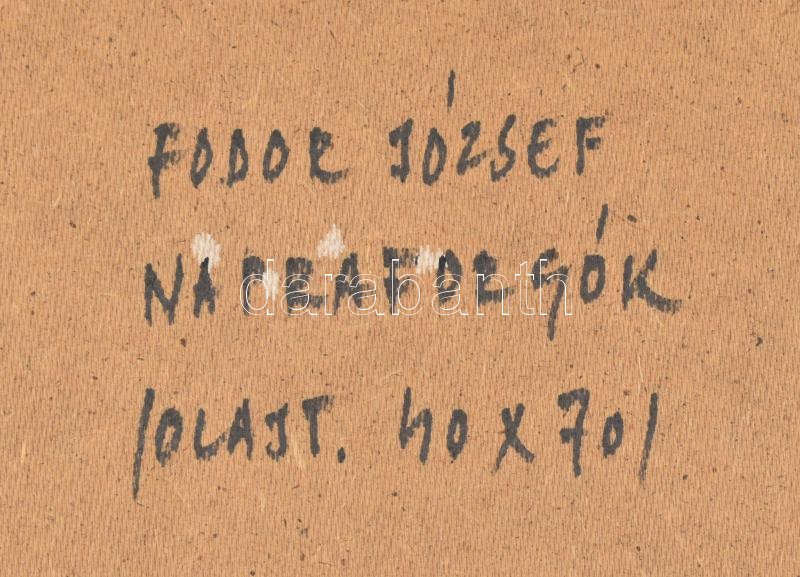 FODOR JÓZSEF
NAPRAFORGÓK
darabanth
/OLAJT. 40 X 70/